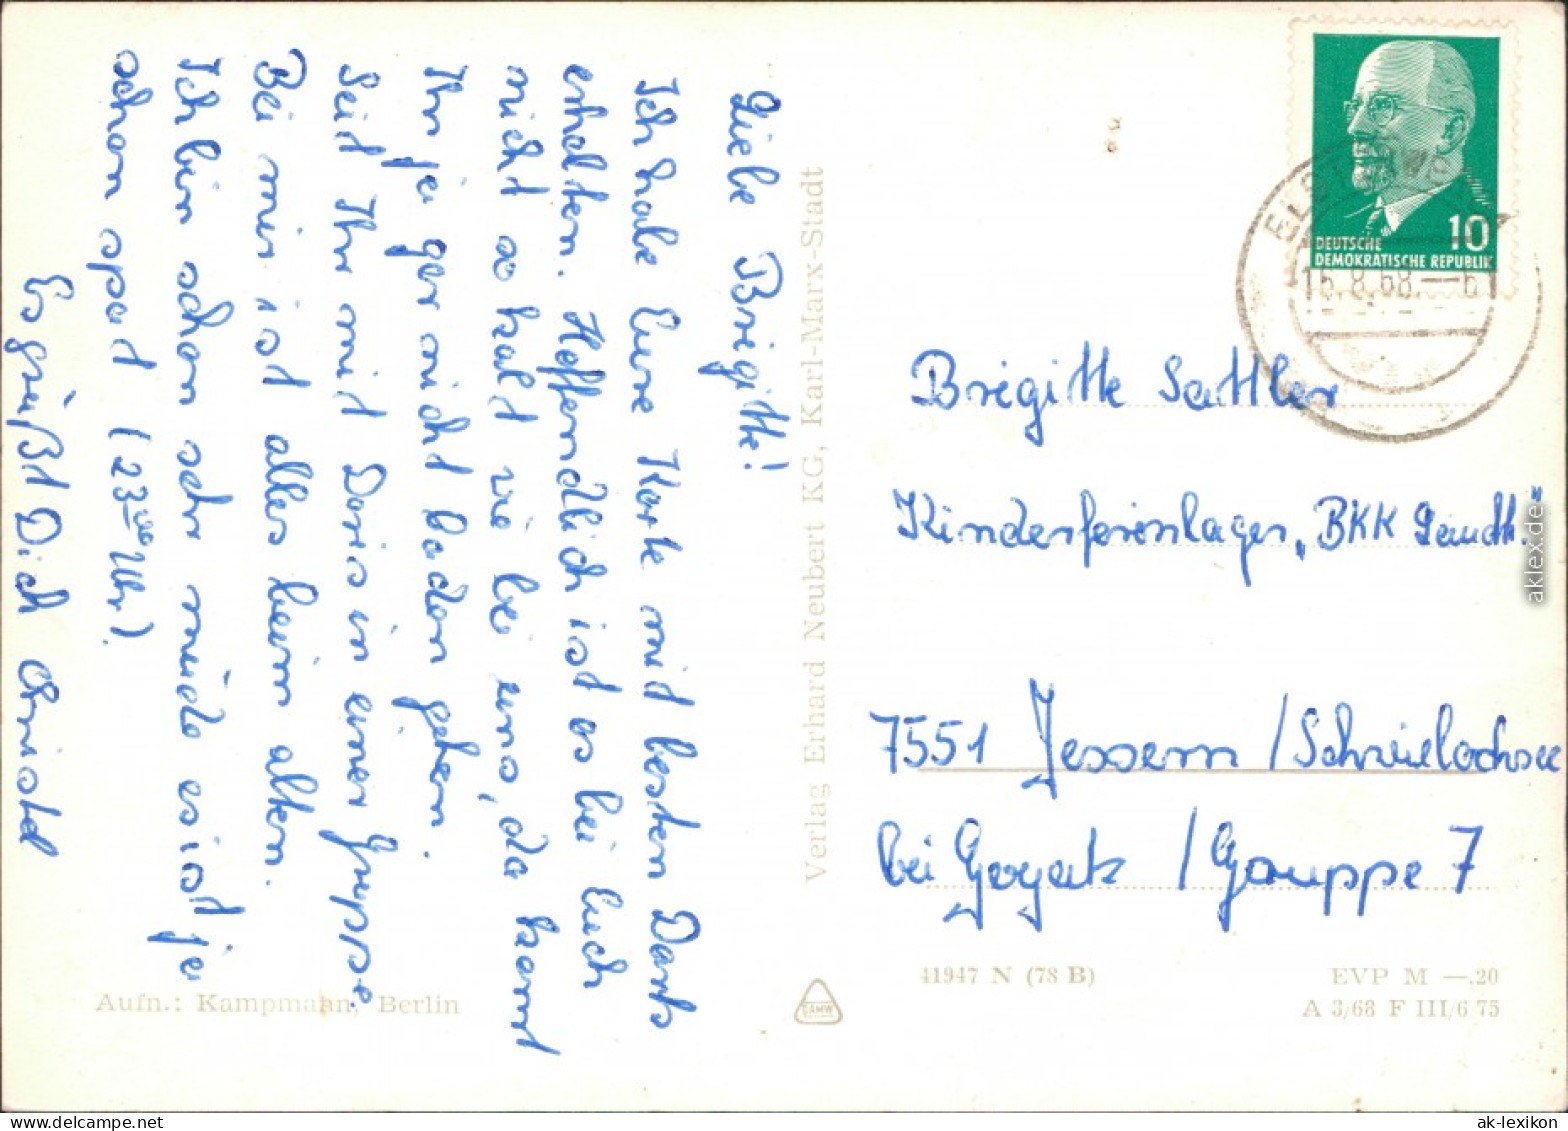 Liebe Brigitte!
Ich habe Eure Karte mit besten Dank
erhalten. Hoffendlich ist es bei Euch
nicht so kalt wie bei uns, da kamt
Ihr ja gar nicht baden gehen.
Seid Ihr mit Doris in einer Gruppe.
Bei mir ist alles beim alten.
Ich bin schon sehr müde es ist ja
schon spät (23⁰⁰ Uhr).
Es grüßt Dich Christel
Aufn.: Kampmann, Berlin
Verlag Erhard Neubert KG, Karl-Marx-Stadt
DEUTSCHE 10
DEMOKRATISCHE REPUBLIK
.8.68.—6
Brigitte Sattler
Kinderferienlager „BKK
7551 Jessern /Schwielochsee
bei Goyatz /Grouppe 7
41947 N (78 B)
EVP M —,20
A 3/68 F III/6 75
aklex.de
ak-lexikon